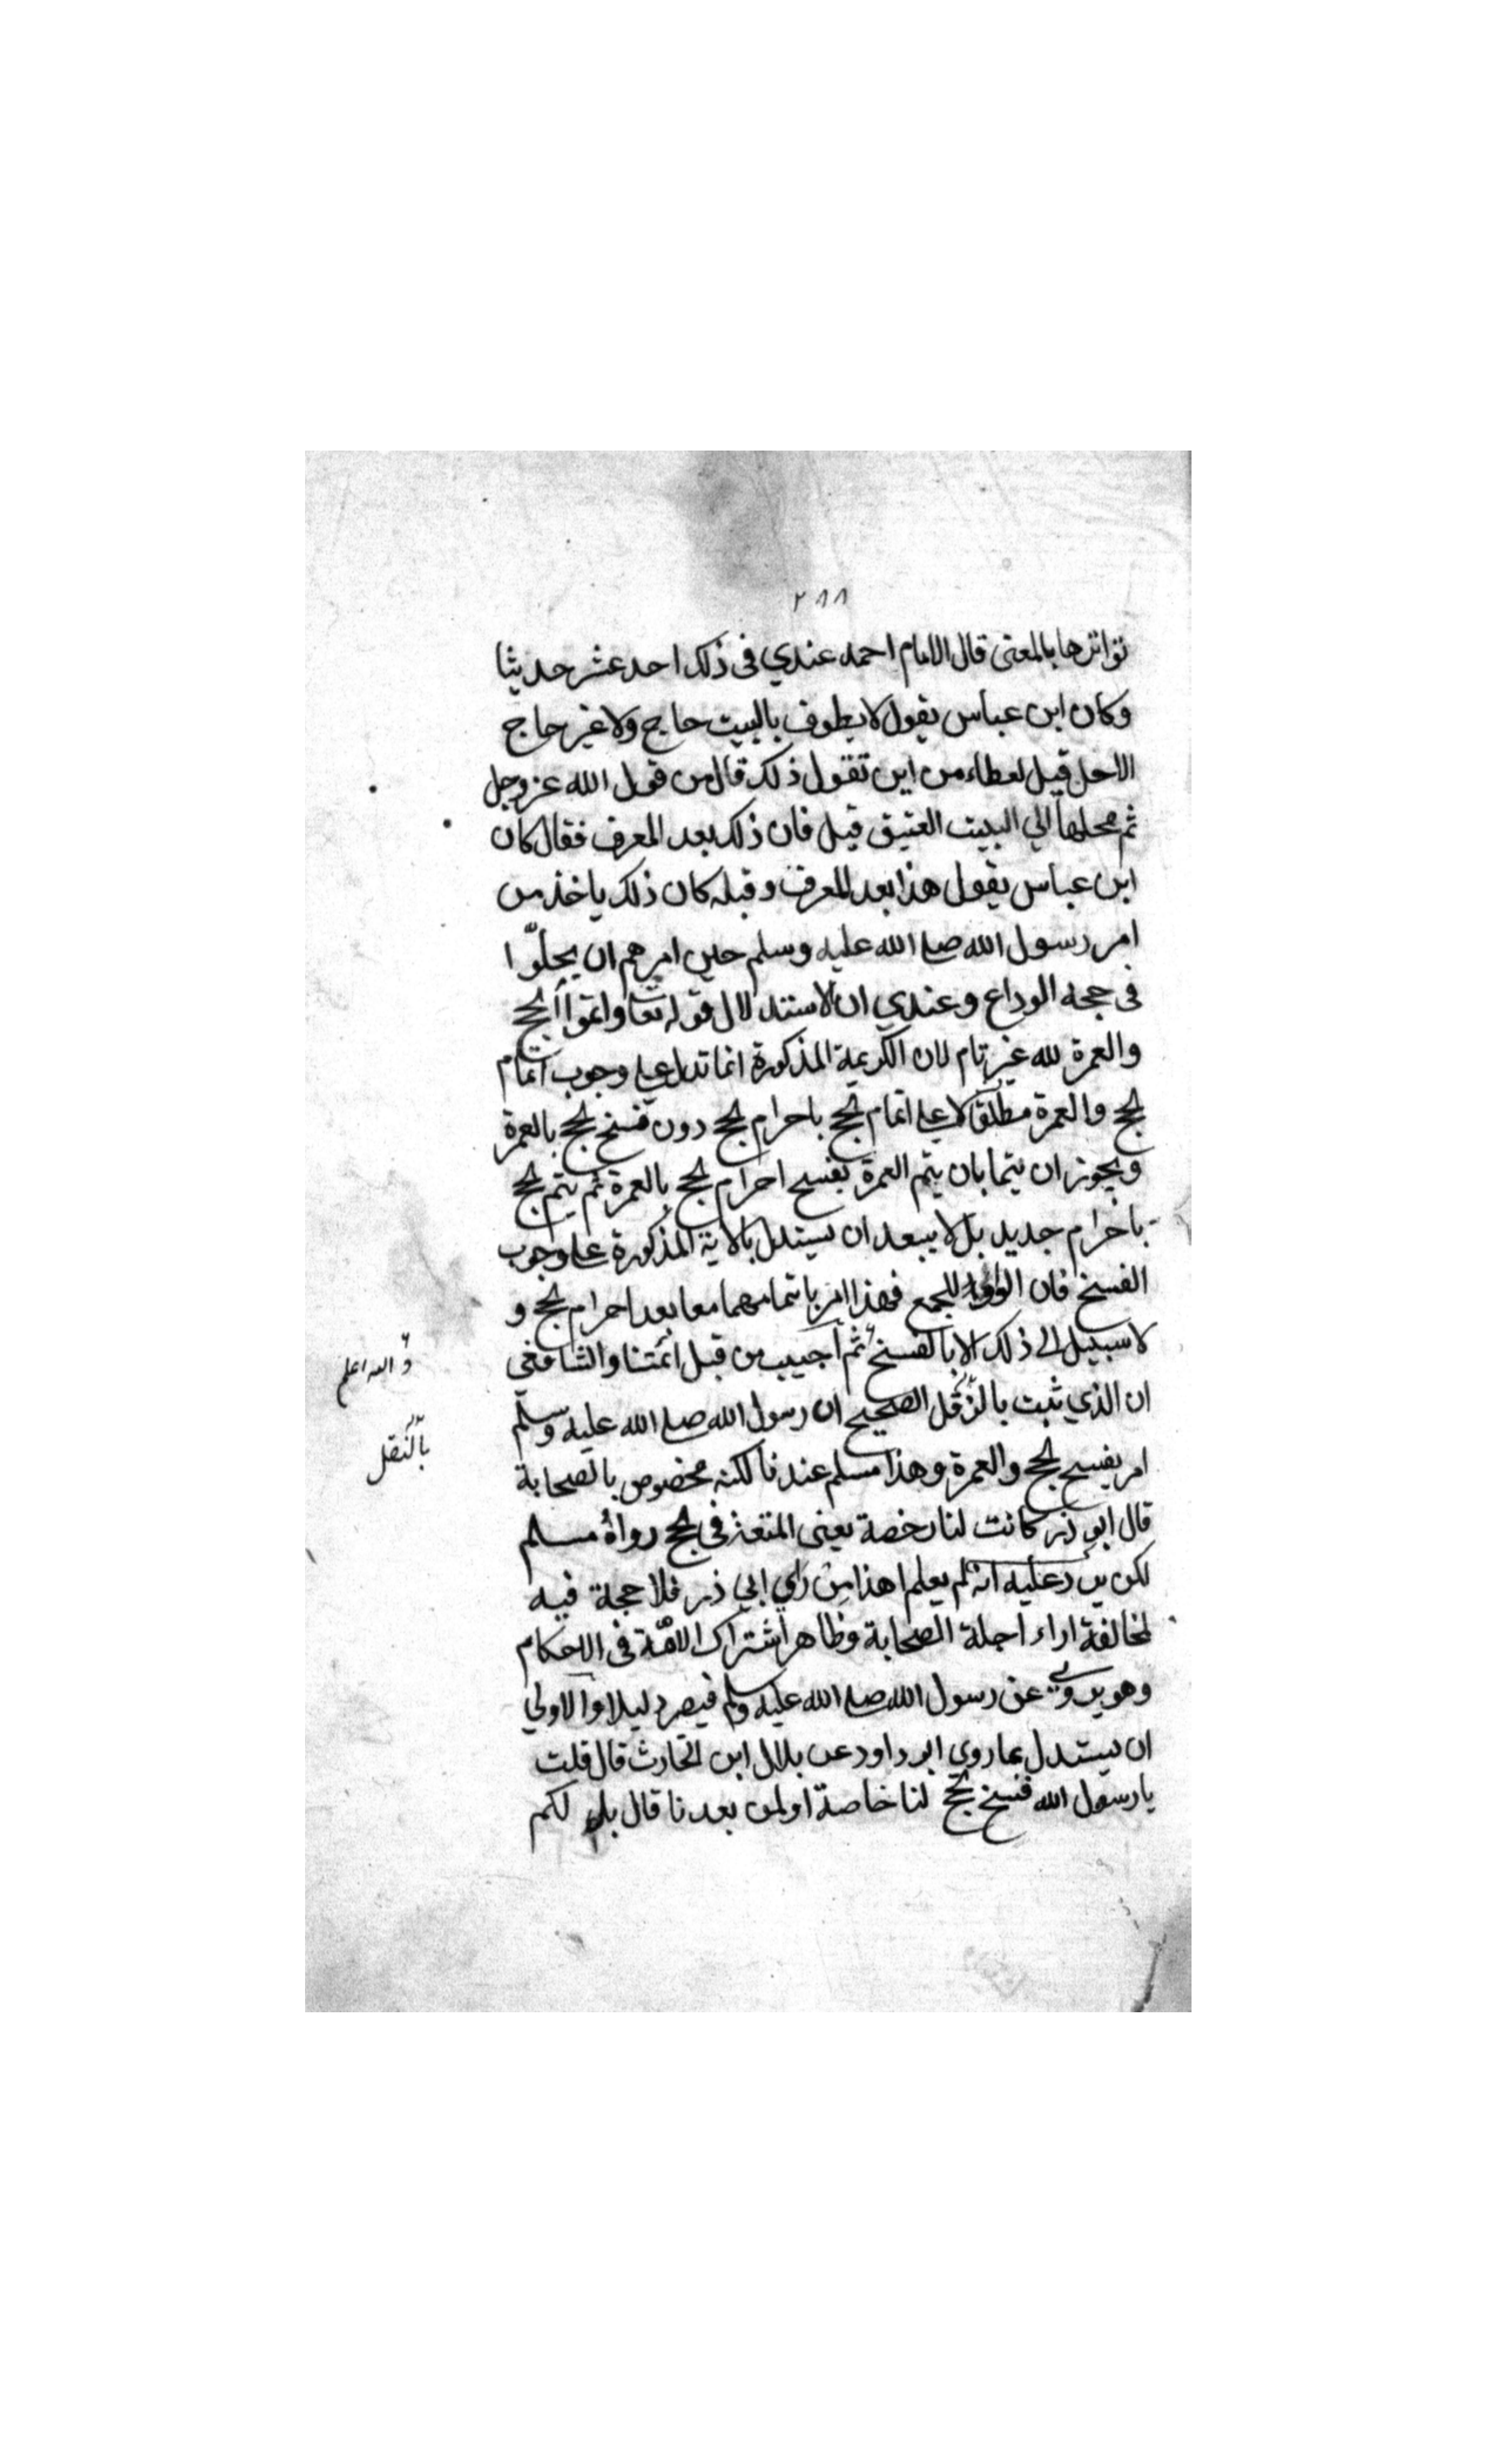 ٢٨٨
تواترها بالمعنى قال الامام احمد عندي فى ذلك احد عشر حديثا
وكان ابن عباس يقول لا يطوف بالبيت حاج ولا غير حاج
الا حل قيل لعطاء من اين تقول ذلك قال من قول الله عز وجل
ثم محلها الي البيت العتيق قيل فان ذلك بعد المعرف فقال كان
ابن عباس يقول هذا بعد المعرف وقبله كان ذلك ياخذ من
امر رسول الله صلى الله عليه وسلم حين امرهم ان يحلّوا
فى حجة الوداع وعندي ان الاستدلال قوله تعا واتموا الحج
والعمرة لله غير تام لان الكريمة المذكورة انما تدل على وجوب اتمام
الحج والعمرة مطلقا لا على اتمام الحج باحرام الحج دون فسخ الحج بالعمرة
ويجوز ان يتما بان يتم العمرة بفسح احرام الحج بالعمرة ثم يتم الحج
باحرام جديد بل لا يبعد ان يستدل بالاية المذكورة على وجوب
الفسخ فان الواو للجمع فهذا امر باتمامهما معا بعد احرام الحج و
لا سبيل الى ذلك الا بالفسخ ثم اجيب من قبل ائمتنا والشافعى
والله اعلم
ان الذي ثبت بالنقل الصحيح ان رسول الله صلى الله عليه وسلم
بالنقل
امر بفسح الحج والعمرة وهذا مسلم عندنا لكنه مخصوص بالصحابة
قال ابو ذر كانت لنا رخصة يعنى المتعة فى الحج رواه مسلم
لكن يرد عليه انه لم يعلم اهذا من راي ابي ذر فلا حجة فيه
لمخالفة اراء اجلة الصحابة وظاهر اشتراك الامّة فى الاحكام
وهو يروي عن رسول الله صلى الله عليه وسلم فيصر دليلا والاولي
ان يستدل بما روى ابو داود عن بلال ابن الحارث قال قلت
يا رسول الله فسخ الحج لنا خاصة او لمن بعدنا قال بل لكم